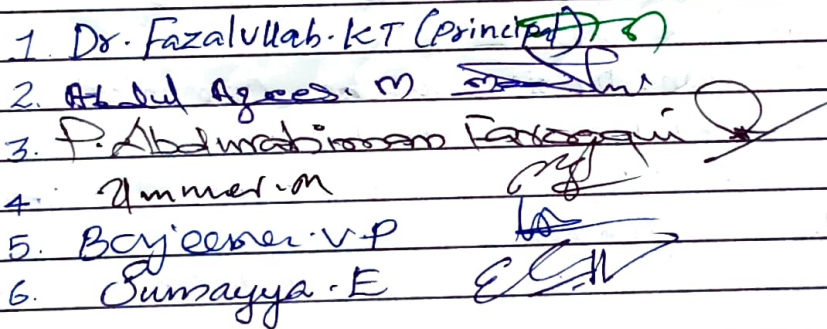 1. Dr. Fazalullah. KT (Principal)
2. Abdul Azees. M
3. P. Abdurahiman Farooqui
4. Ummer. M
5. Bajeena. V.P
6. Sumayya. E